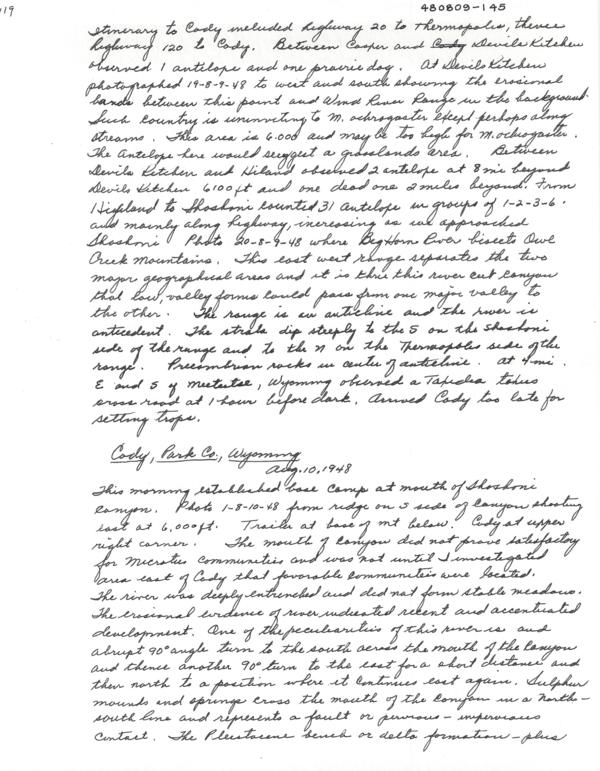 119
480809-145
Itinerary to Cody included highway 20 to Thermopolis, thence
highway 120 to Cody. Between Casper and Cody Devils Kitchen
observed 1 antelope and one prairie dog. At Devils Kitchen
photographed 19-8-9-48 to west and south showing the erosional
lands between this point and Wind River Range in the background.
Such country is uninviting to M. ochrogaster except perhaps along
streams. This area is 6,000 and may be too high for M. ochrogaster.
The Antelope here would suggest a grasslands area. Between
Devils Kitchen and Hiland observed 2 antelope at 8 mi beyond
Devils Kitchen 6100 ft and one dead one 2 miles beyond. From
Highland to Shoshoni counted 31 Antelope in groups of 1-2-3-6.
and mainly along highway, increasing as we approached
Shoshoni Photo 20-8-9-48 where Big Horn River bisects Owl
Creek Mountains. This east west range separates the two
major geographical areas and it is thru this river cut canyon
that low, valley forms could pass from one major valley to
the other. The range is an anticline and the river is
antecedent. The strata dip steeply to the S on the Shoshoni
side of the range and to the N on the Thermopolis side of the
range. Precambrian rocks in center of anticline. At 4 mi.
E and S of Meeteetse, Wyoming observed a Taxidea taxus
cross road at 1 hour before dark. Arrived Cody too late for
setting traps.
Cody, Park Co., Wyoming
Aug. 10, 1948
This morning established base camp at mouth of Shoshoni
canyon. Photo 1-8-10-48 from ridge on S side of Canyon shooting
east at 6,000 ft. Trailer at base of mt below. Cody at upper
right corner. The mouth of canyon did not prove satisfactory
for Microtus communities and was not until I investigated
area east of Cody that favorable communities were located.
The river was deeply entrenched and did not form stable meadows.
The erosional evidence of river indicated recent and accentuated
development. One of the peculiarities of this river is and
abrupt 90° angle turn to the south across the mouth of the Canyon
and thence another 90° turn to the east for a short distance and
then north to a position where it continues east again. Sulphur
mounds and springs cross the mouth of the Canyon in a north-
south line and represents a fault or pervious - impervious
contact. The Pleistocene bench or delta formation - plus